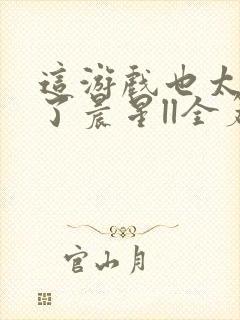 這游戲也太
了晨星||全
官山月